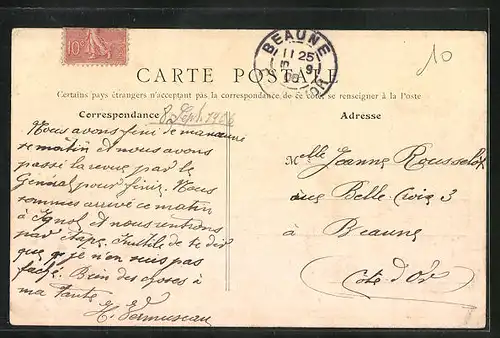 10c
BEAUNE
11 25
9
10
CARTE POSTALE
Certains pays étrangers n'acceptent pas la correspondance de ce côté, se renseigner à la Poste
Correspondance
8 Sept 1906
Adresse
Nous avons fini de manœuvre
ce matin et nous avons
passé la revue par le
Général pour finir. Nous
sommes arrivé ce matin
à Ignol et nous rentrons
par étape. Inutile de te dire
que je n'en suis pas
faché. Bien des choses à
ma tante
Melle Jeanne Rousselot
rue Belle Croix 3
à Beaune
Côte d'Or